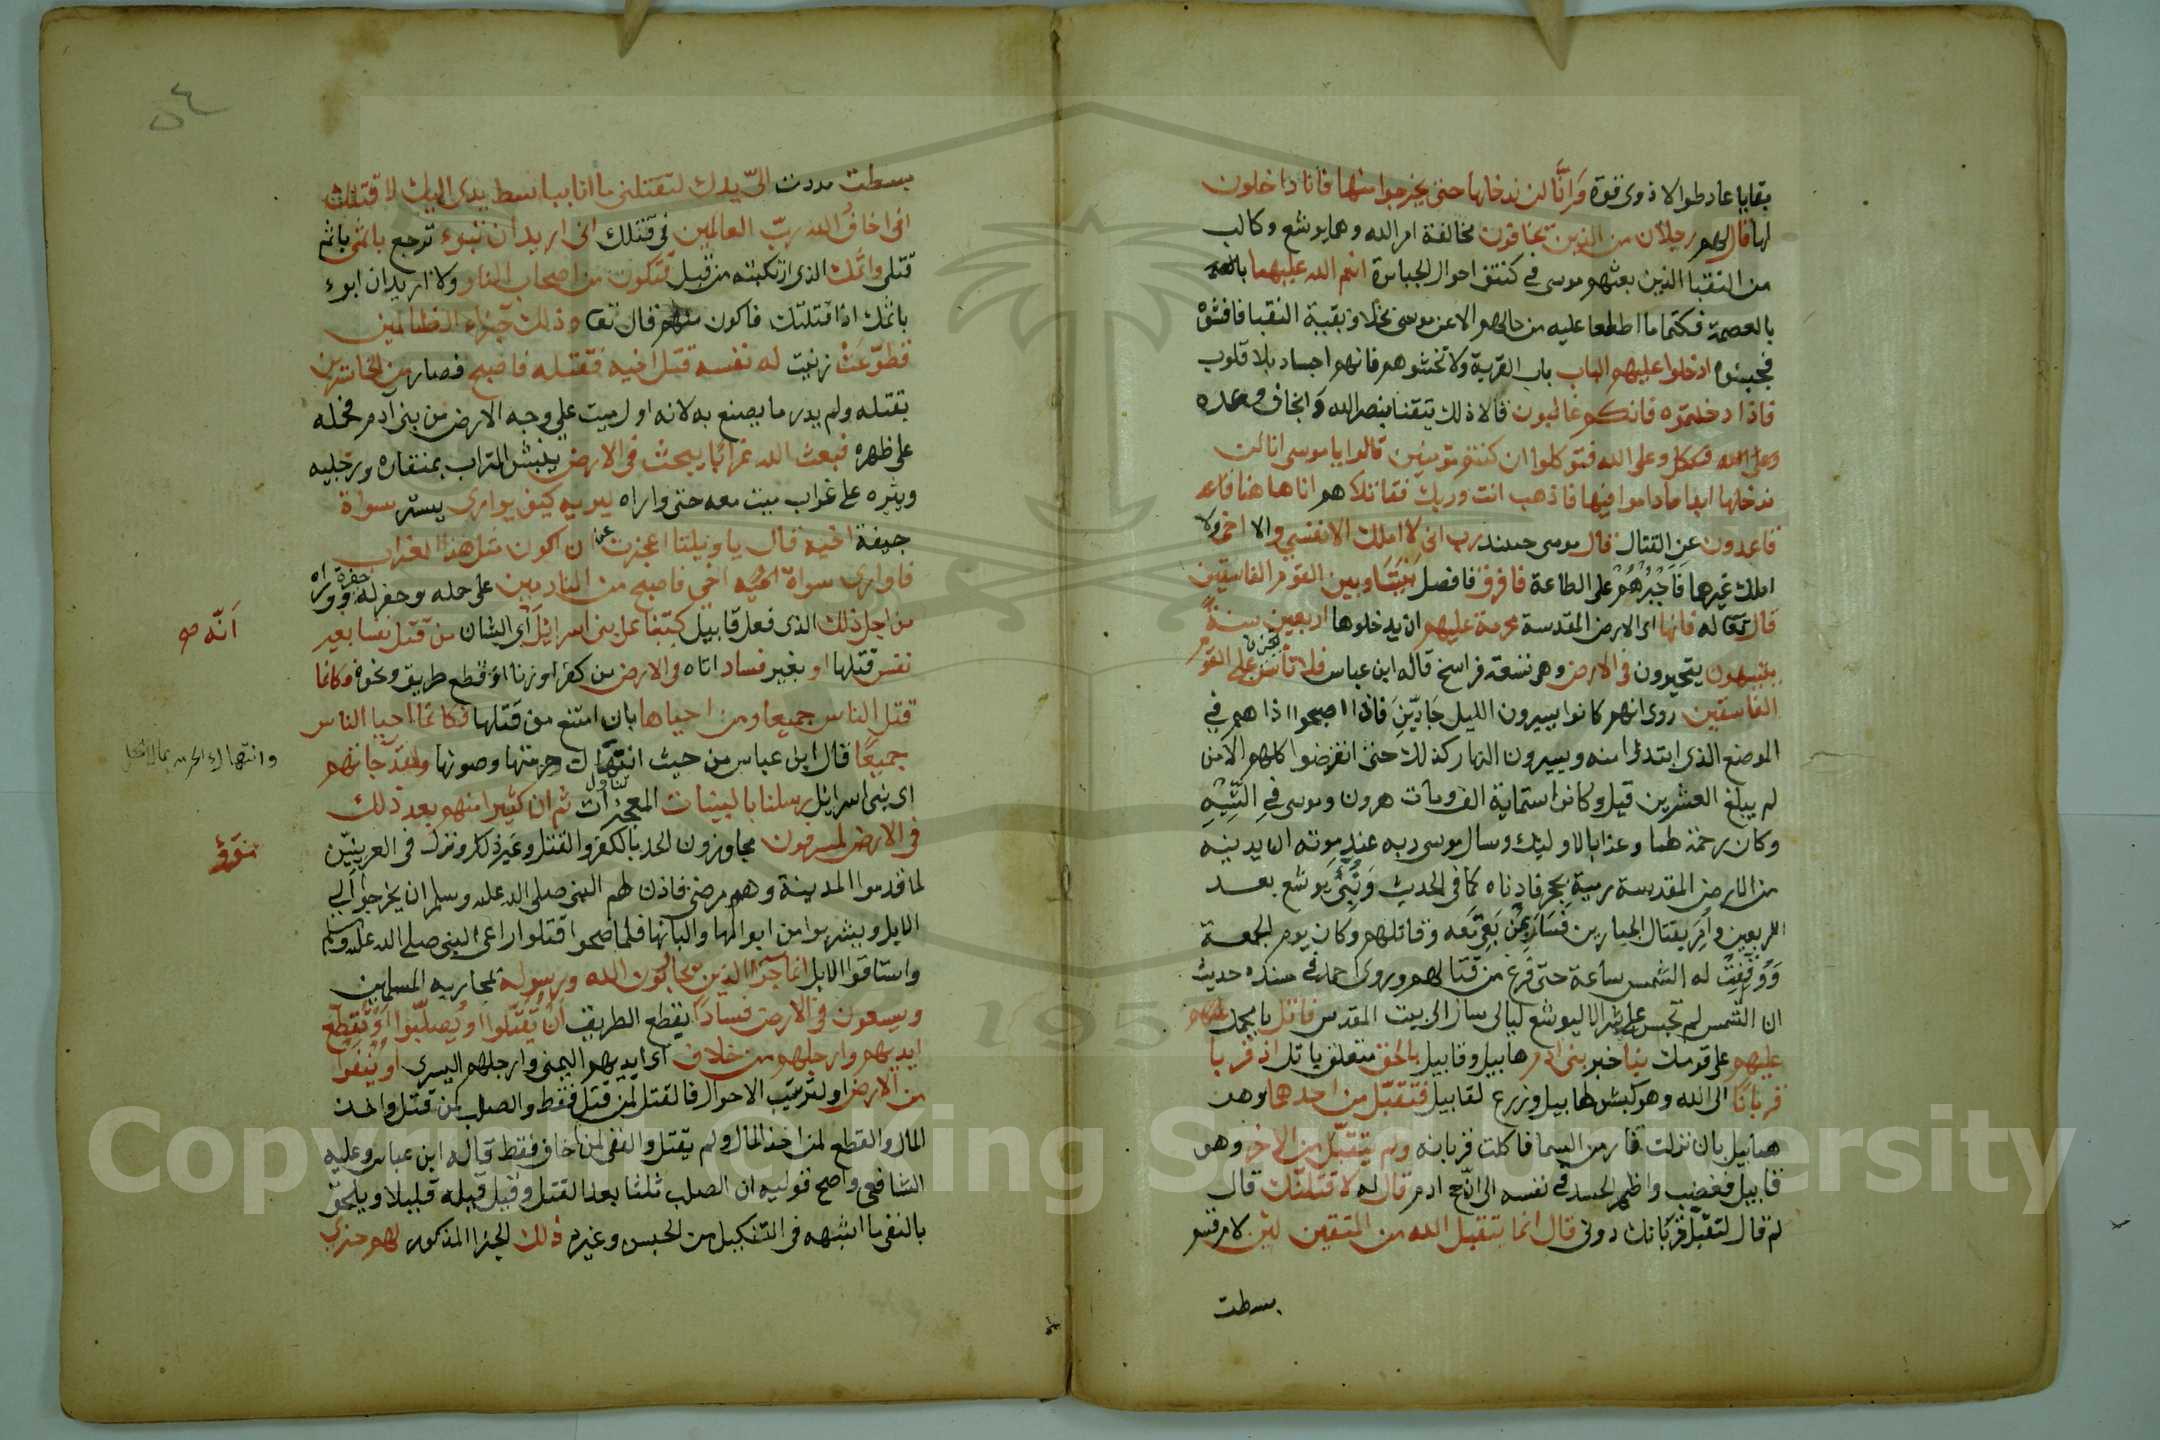 بقايا عاد طوالا ذوى قوة وَانَّا لن ندخلها حتى يخرجوا منها فانا داخلون
لها قال لهم رجلان من الذين يخافون مخالفة امر الله وهما يوشع وكالب
من النقبا الذين بعثهم موسى في كشف احوال الجبابرة انعم الله عليهما
بالعصمة فكتما ما اطلعا عليه من حالهم الا عن موسى بخلاف بقية النقبا فافشوه
فجبنوا ادخلوا عليهم الباب باب القرية ولا تخشوهم فانهم اجساد بلا قلوب
فاذا دخلتموه فانكم غالبون قالا ذلك تيقنا بنصر الله وانجاز وعده
وعلى الله فتوكلوا ان كنتم مومنين قالوا يا موسى انا لن
ندخلها ابدا ماداموا فيها فاذهب انت وربك فقاتلا هم انا هاهنا قاعد
قاعدون عن القتال قال موسى حينئذ رب انى لا املك الا نفسي و الا اخى ولا
املك غيرها فَاَجْبُرُهُمْ على الطاعة فافرق فافصل بَيْنَنَا وبين القوم الفاسقين
قال تعالى له فانها اى الارض المقدسة محرمة عليهم ان يدخلوها اربعين سنةً
يتيهون يتحيرون فى الارض وهى تسعة فراسخ قاله ابن عباس فلا تأس تحزن على القوم
الفاسقين روى انهم كانوا يسيرون الليل جَادّينَ فاذا اصبحوا اذا هم في
الموضع الذى ابتدئوا منه ويسيرون النهار كذلك حتى انقرضوا كلهم الا من
لم يبلغ العشرين قيل وكانوا ستماية الف ومات هرون وموسى في التِّيْهِ
وكان رحمة لهما وعذابا لاوليك وسال موسى ربه عند موته ان يدنيه
من الارض المقدسة رمية بحجر فادناه كما في الحديث وَنُبِّئَ يوشع بعد
الاربعين واُمِرَ بقتال الجبارين فَسَارَ بِمَنْ بَقِيَ مَعَه وقاتلهم وكان يوم الجمعة
وَوُقِفَتْ له الشمس ساعة حتى فرغ من قتالهم وروى احمد في مسنده حديث
ان الشمس لم تحبس على بشر الا ليوشع ليالى سار الى بيت المقدس فاتل يا محمد
عليهم على قومك نبا خبر بنى ادم هابيل وقابيل بالحق متعلق باتل اذ قربا
قربانا الى الله وهو كبش لهابيل وزرع لقابيل فتقبل من احدهما وهو
هابيل بان نزلت نار من السما فاكلت قربانه ولم يتقبل من الاخر وهو
قابيل فغضب واظمر الحسد في نفسه الى ان حج ادم قال له لاقتلنك قال
لم قال لتقبل قربانك دونى قال انما يتقبل الله من المتقين لئن لام قسم
بسطت
٥٤
بسطت مددت الىّ يدك لتقتلنى ما انا بباسط يدى اليك لاقتلك
انى اخاف الله ربّ العالمين فى قتلك انى اريد ان تبوء ترجع باثمى باثم
قتلى واثمك الذى ارتكبته من قبل فتكون من اصحاب النار ولا اريد ان ابوء
باثمك اذا قتلتك فاكون منهم قال تعا وذلك جزاء الظالمين
فطوّعَتْ زينت له نفسه قتل اخيه فقتله فاصبح فصار من الخاسرين
بقتله ولم يدر ما يصنع به لانه اول ميت على وجه الارض من بنى آدم فحمله
على ظهره فبعث الله غرابا يبحث فى الارض ينبش التراب بمنقاره ورجليه
ويثيره على غراب ميت معه حتى واراه ليريه كيف يوارى يستر سواة
جيفة اخيه قال يا ويلتا اعجزت عن ان اكون مثل هذا الغراب
فاوارى سواة اخى فاصبح من النادمين على حمله وحفر له حفرة وواراه
من اجل ذلك الذى فعل قابيل كتبنا على بنى اسرائيل اَى الشان من قتل نفسا بغير
انّه صح
نفس قتلها او بغير فساد اتاه فى الارض من كفر او زنا او قطع طريق ونحوه فكانما
قتل الناس جميعا ومن احياها بان امتنع من قتلها فكانما احيا الناس
جميعًا قال ابن عباس من حيث انتهاك حرمتها وصونها ولقد جاتهم
اى بنى اسرائيل رسلنا بالبينات المعجزات ثم ان كثيرا منهم بعد ذلك
فى الارض لمسرفون مجاوزون الحد بالكفر والقتل وغير ذلك ونزل فى العرنيّين
لما قدموا المدينة وهم مرضى فاذن لهم النبى صلى الله عليه وسلم ان يخرجوا الى
الابل ويشربوا من ابوالها والبانها فلما صحوا قتلوا راعى النبى صلى الله عليه وسلم
واستاقوا الابل انما جزآا الذين يحاربون الله ورسوله بمحاربة المسلمين
ويسعون فى الارض فسادًا بقطع الطريق اَنْ يُّقَتَّلُوا او يُصلَّبُوا اَوْ تُقطَّع
ايديهم وارجلهم من خلاف اى ايديهم اليمنى وارجلهم اليسرى او يُنْفَوْا
من الارض او لترتيب الاحوال فالقتل لمن قتل فقط والصلب لمن قتل واخذ
المال والقطع لمن اخذ المال ولم يقتل والنفى لمن اخاف فقط قاله ابن عباس وعليه
الشافعى واصح قوليه ان الصلب ثلثا بعد القتل وقيل قبله قليلا ويلحق
بالنفى ما اشبهه فى التنكيل من الحبس وغيره ذلك الجزا المذكور لهم خزى
Copyright © King Saud University
1957